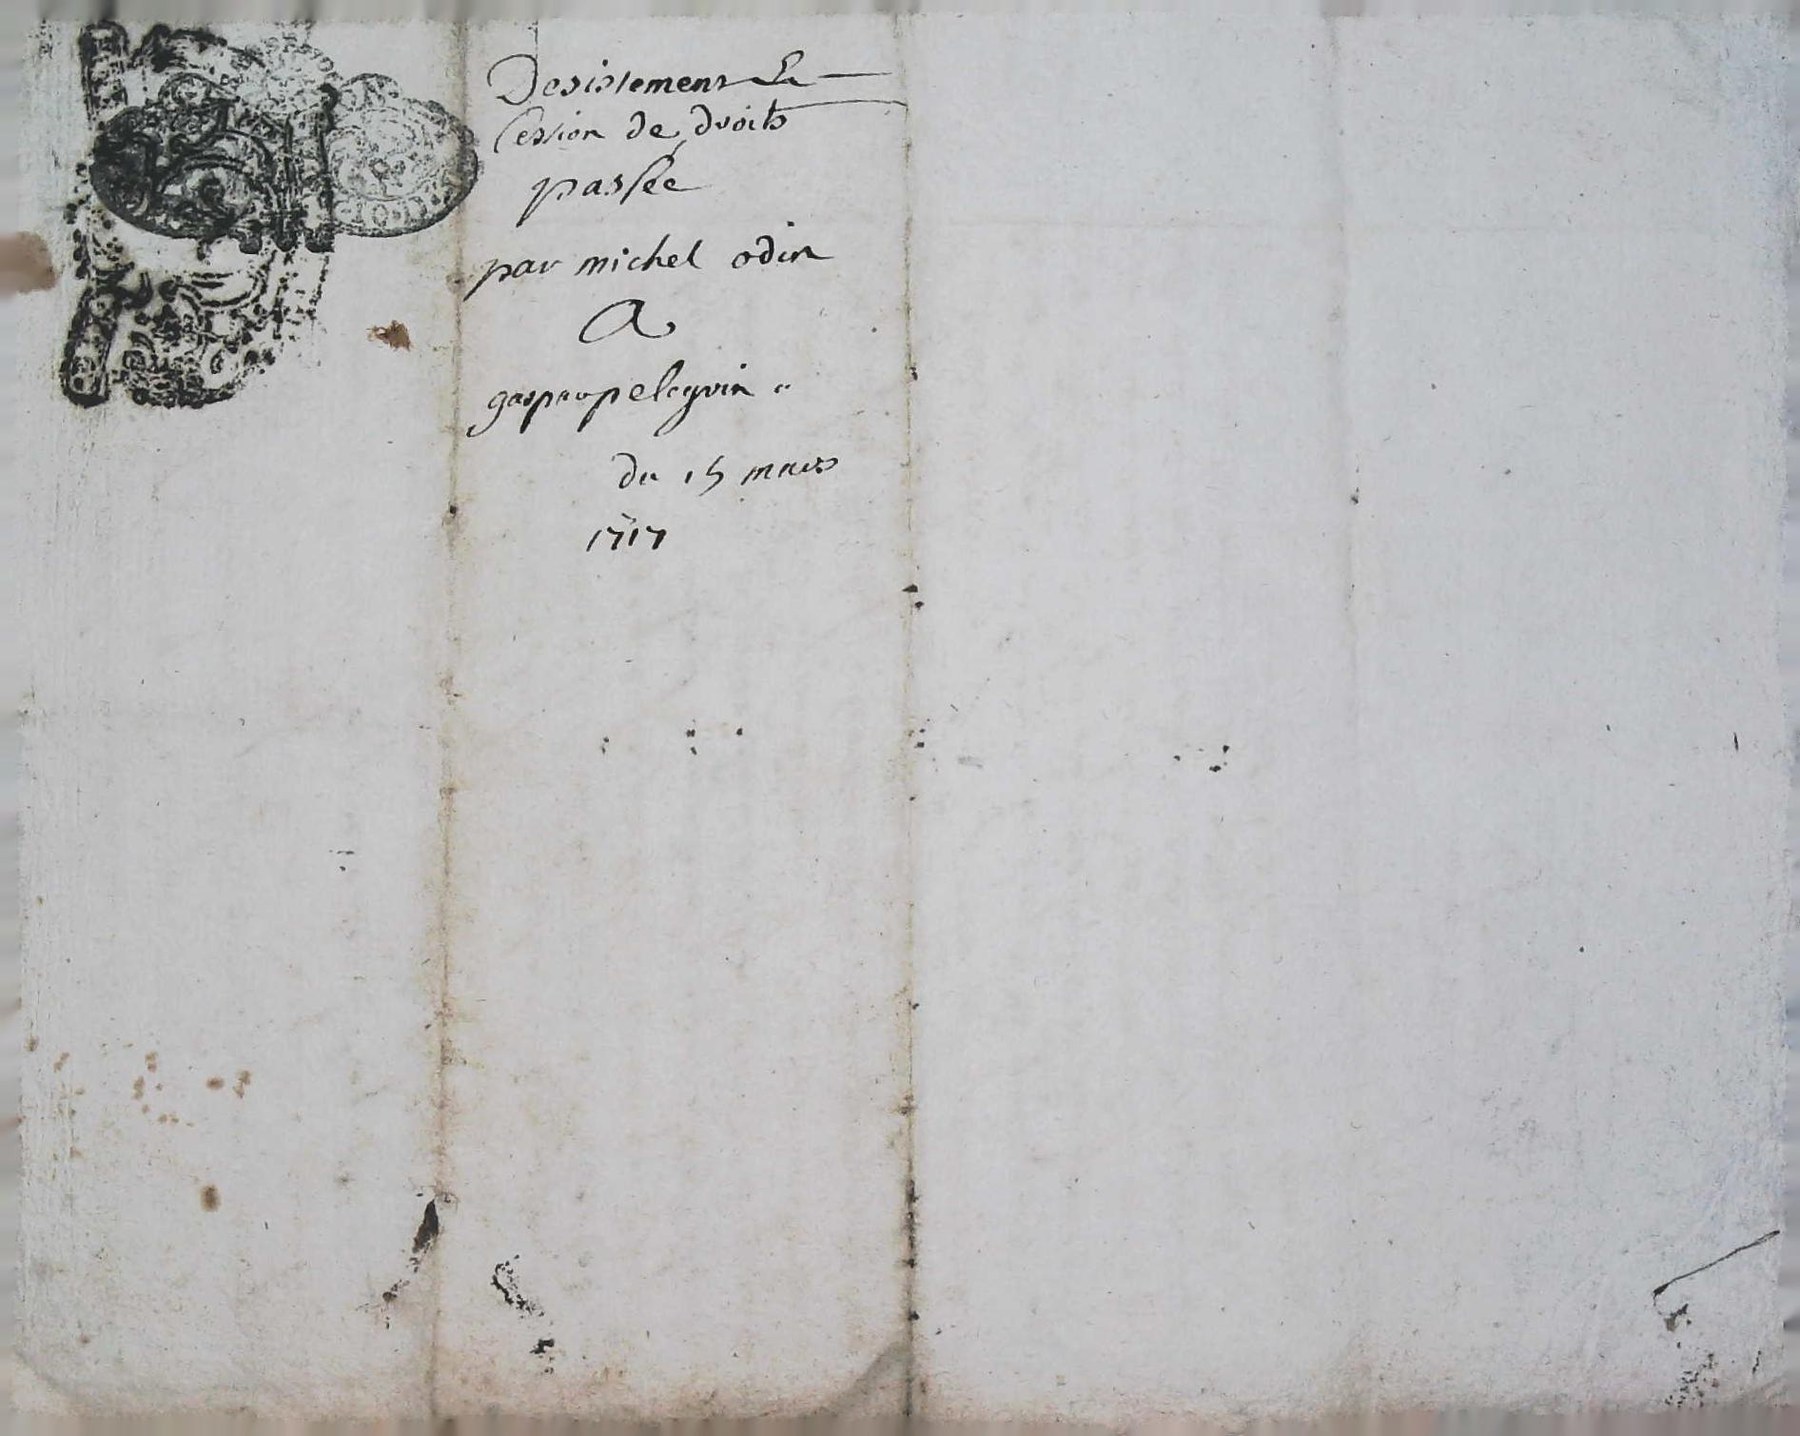 Desistement &
Cession de droits
passée
par michel odin
A
gaspar pelegrin
du 15 mars
1717